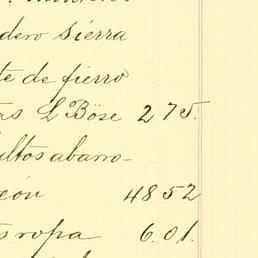 dero Sierra
te de fierro
as L Böse 275.
ultos abarro-
eón 4852
s ropa 6.01.